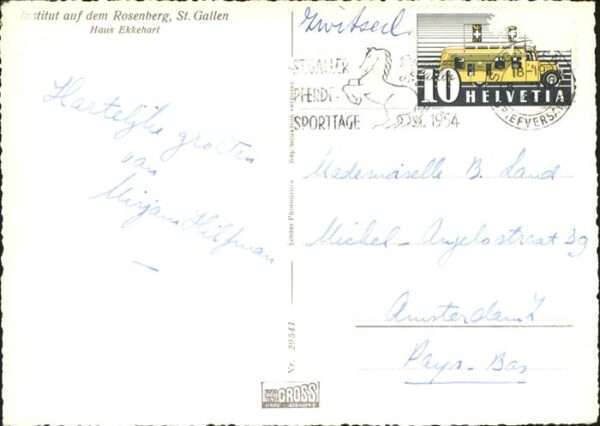 Institut auf dem Rosenberg, St. Gallen
Haus Ekkehart
Zwitserl.
10 HELVETIA
ST. GALLER
PFERDE-
SPORTTAGE
1954
18-19
Hartelijke groeten
van
Mirjam Hilfman
Mademoiselle B. Land
Michel-Angelostraat 39
Amsterdam Z
Pays-Bas
Nr. 29541
GROSS